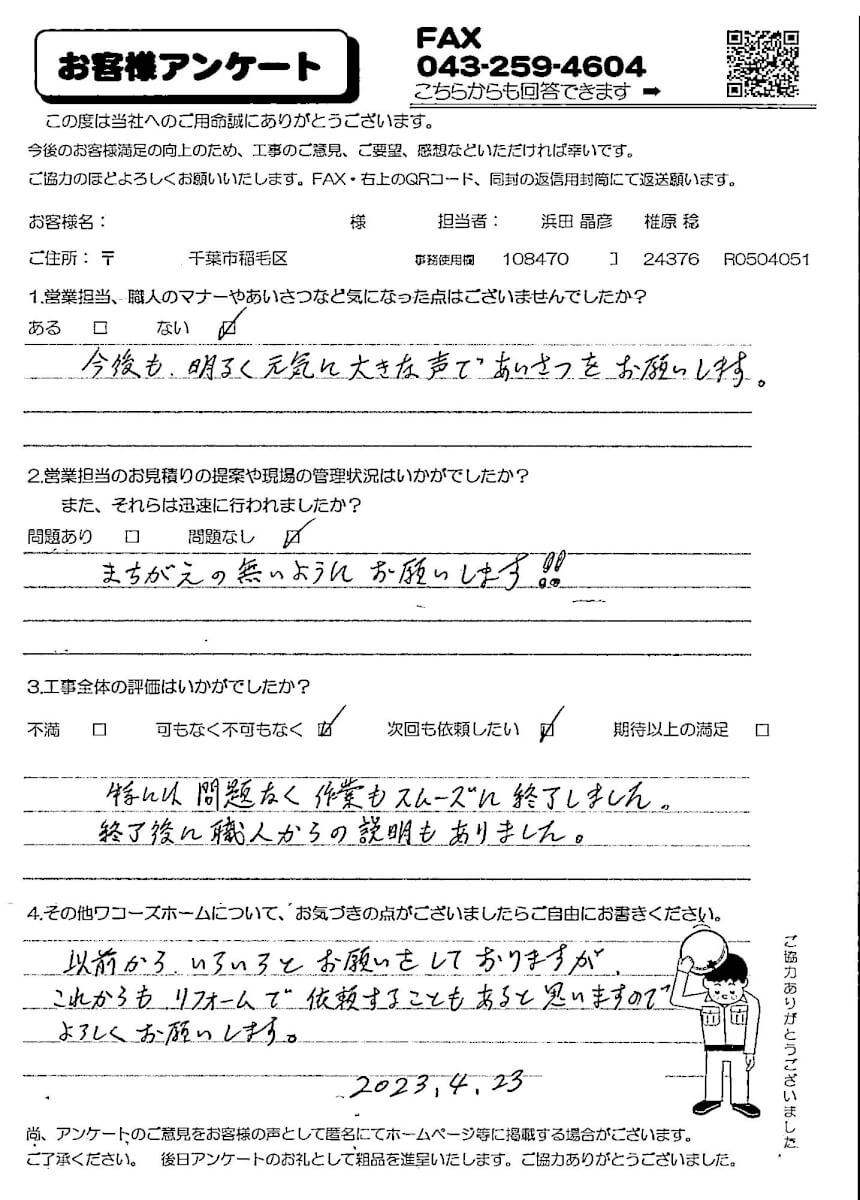 お客様アンケート
FAX
043-259-4604
こちらからも回答できます ➡
この度は当社へのご用命誠にありがとうございます。
今後のお客様満足の向上のため、工事のご意見、ご要望、感想などいただければ幸いです。
ご協力のほどよろしくお願いいたします。FAX・右上のQRコード、同封の返信用封筒にて返送願います。
お客様名： 様 担当者： 浜田 晶彦 椎原 稔
ご住所：〒 千葉市稲毛区 事務使用欄 108470 コ 24376 R0504051
1.営業担当、職人のマナーやあいさつなど気になった点はございませんでしたか？
ある □ ない ☑
今後も、明るく元気に大きな声であいさつをお願いします。
2.営業担当のお見積りの提案や現場の管理状況はいかがでしたか？
また、それらは迅速に行われましたか？
問題あり □ 問題なし ☑
まちがえの無いようにお願いします!!
3.工事全体の評価はいかがでしたか？
不満 □ 可もなく不可もなく ☑ 次回も依頼したい ☑ 期待以上の満足 □
問題なく作業もスムーズに終了しました。
終了後に職人からの説明もありました。
4.その他ワコーズホームについて、お気づきの点がございましたらご自由にお書きください。
以前から、いろいろとお願いをしておりますが、
これからも、リフォームで依頼することもあると思いますので
よろしくお願いします。
2023.4.23
ご協力ありがとうございました
尚、アンケートのご意見をお客様の声として匿名にてホームページ等に掲載する場合がございます。
ご了承ください。 後日アンケートのお礼として粗品を進呈いたします。ご協力ありがとうございました。